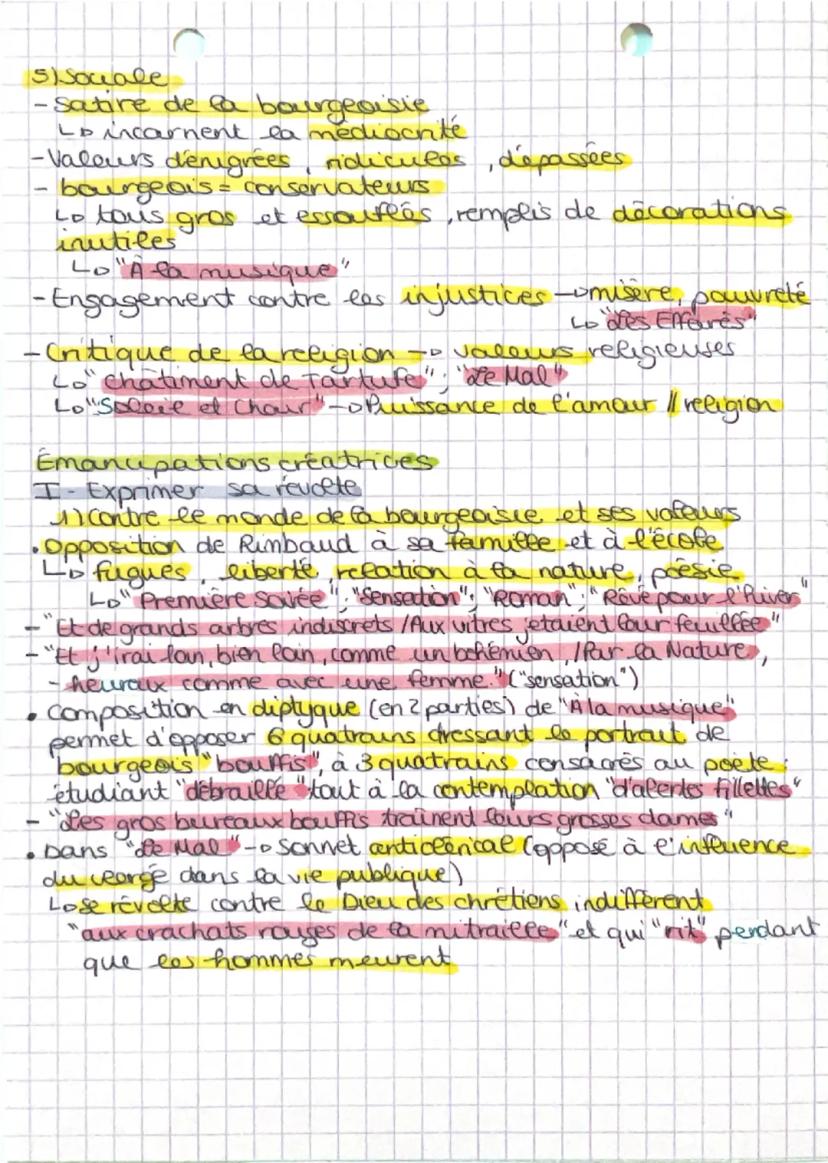 5) Sociale
- Satire de la bourgeoisie
↳ incarnent la médiocrité
- Valeurs dénigrées, ridicules, dépassées
- bourgeois = conservateurs
↳ tous gros et essoufflés, remplis de décorations
inutiles
↳ "À la musique"
- Engagement contre les injustices → misère, pauvreté
↳ "Les Effarés"
- Critique de la religion → valeurs religieuses
↳ "châtiment de Tartufe"; "Le Mal"
↳ "Soleil et Chair" → Puissance de l'amour // religion
Émancipations créatrices
I - Exprimer sa révolte
1) Contre le monde de la bourgeoisie et ses valeurs
• Opposition de Rimbaud à sa famille et à l'école
↳ fugues, liberté, relation à la nature, poésie
↳ "Première Soirée"; "Sensation"; "Roman"; "Rêvé pour l'hiver"
- "Et de grands arbres indiscrets / Aux vitres jetaient leur feuillée"
- "Et j'irai loin, bien loin, comme un bohémien, / Par la Nature,
- heureux comme avec une femme." ("sensation")
• Composition en diptyque (en 2 parties) de "À la musique"
permet d'opposer 6 quatrains dressant le portrait de
bourgeois "bouffis", à 3 quatrains consacrés au poète :
étudiant "débraillé" tout à la contemplation "d'alertes fillettes"
- "Les gros bureaux bouffis traînent leurs grosses dames"
• Dans "Le Mal" → sonnet anticlérical (opposé à l'influence
du clergé dans la vie publique)
↳ se révolte contre le Dieu des chrétiens indifférent
"aux crachats rouges de la mitraille" et qui "rit" pendant
que les hommes meurent